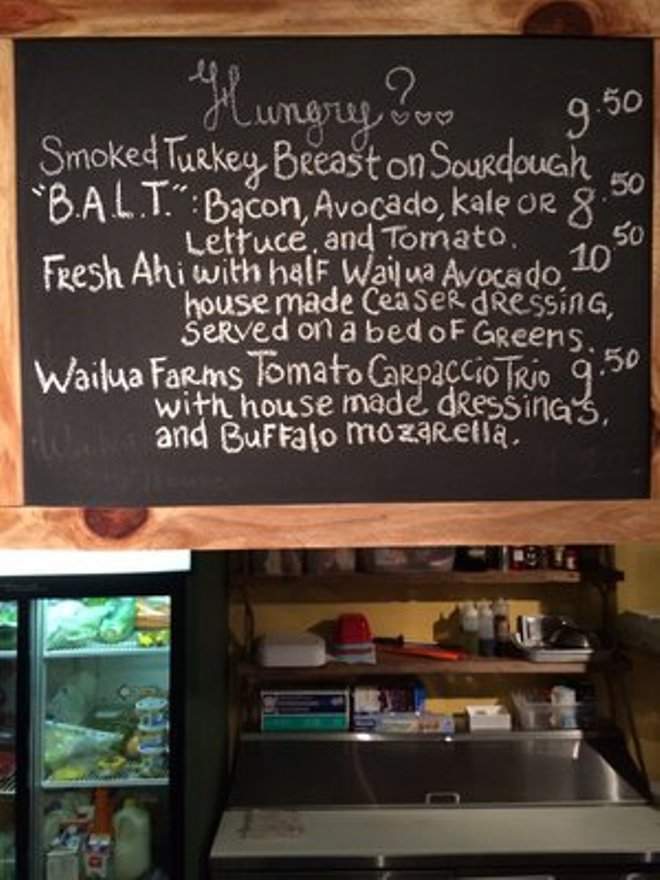 Hungry?...
9.50
Smoked Turkey Breast on Sourdough
"B.A.L.T.": Bacon, Avocado, Kale or 8.50
Lettuce, and Tomato.
Fresh Ahi with half Wailua Avocado, 10.50
house made Ceaser dressing,
served on a bed of Greens.
Wailua Farms Tomato Carpaccio Trio 9.50
with house made dressings,
and Buffalo mozarella.